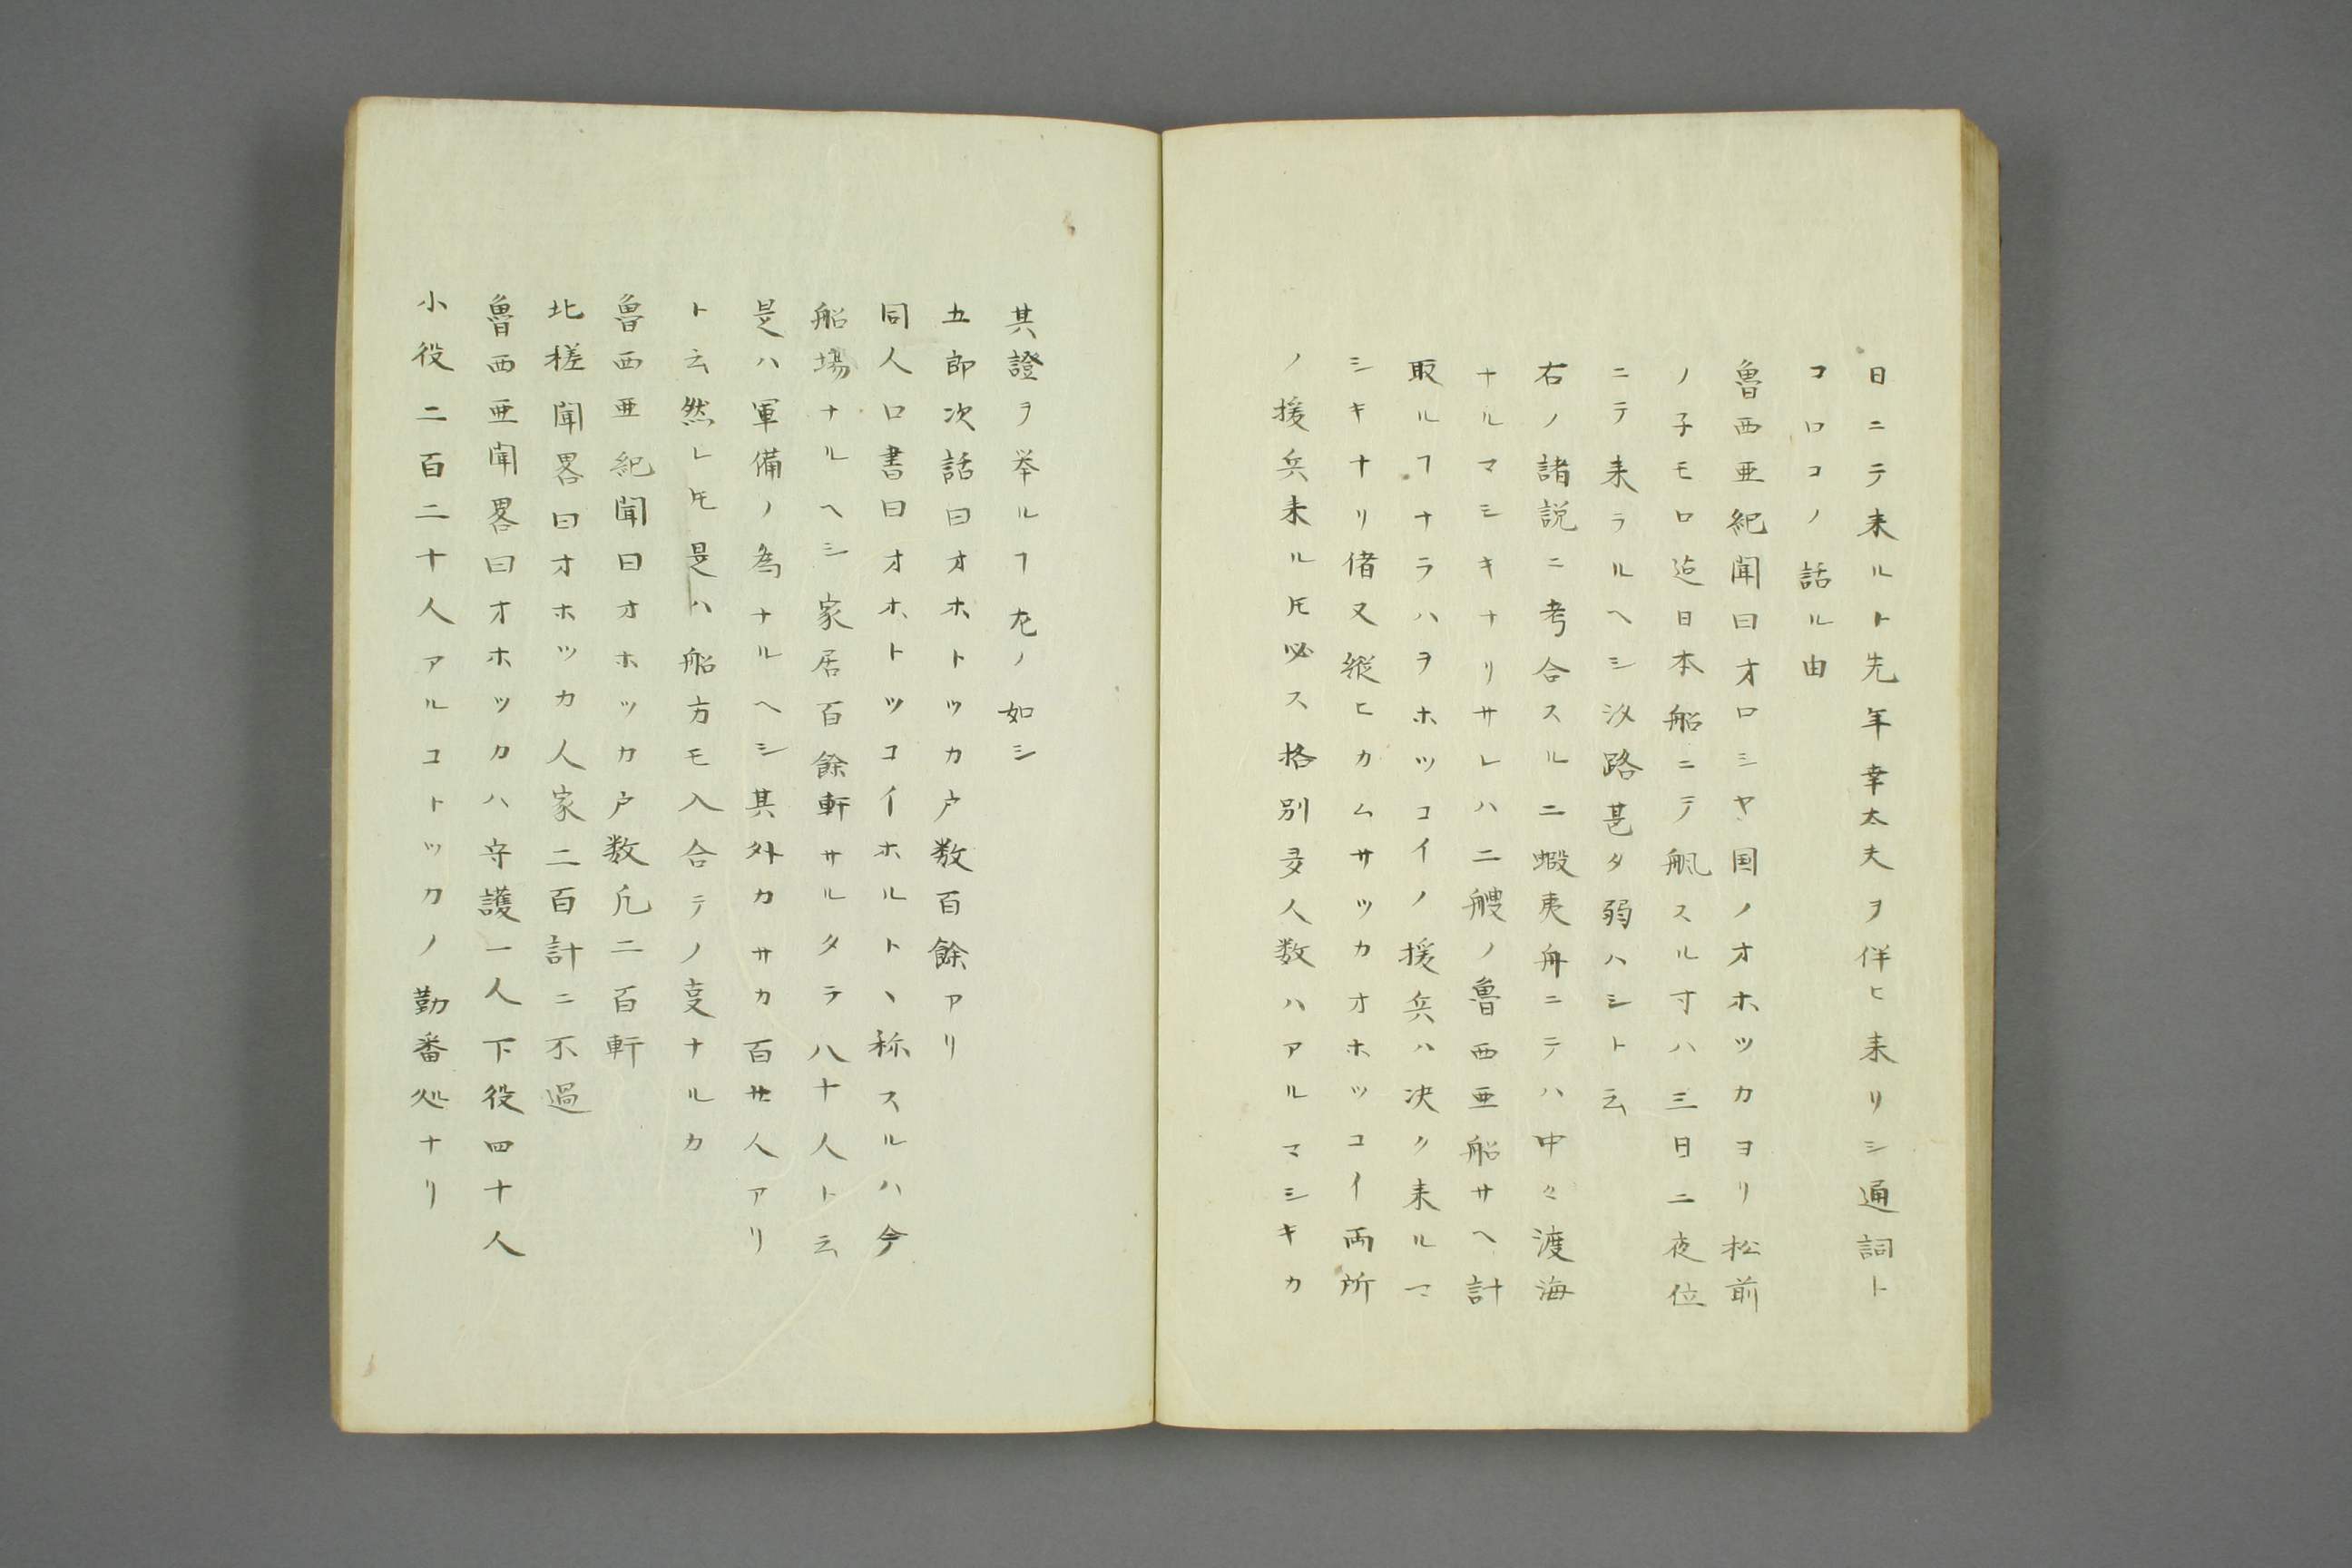 日ニテ来ルト先年幸太夫ヲ伴ヒ来リシ通詞ト
コロコノ話ル由
魯西亜紀聞曰オロシヤ国ノオホツカヨリ松前
ノ子モロ迠日本船ニテ颿スル寸ハ三日二夜位
ニテ来ラルヘシ汐路甚タ弱ハシト云
右ノ諸説ニ考合スルニ二蝦夷舟ニテハ中々渡海
ナルマシキナリサレハ二艘ノ魯西亜船サヘ計
取ルヿナラハヲホツコイノ援兵ハ决〆来ルマ
シキナリ偖又縦ヒカムサツカオホツコイ両所
ノ援兵来ル𪜈必ス格别多人数ハアルマシキカ
其證ヲ挙ルヿ左ノ如シ
五郎次話曰オホトツカ戸数百餘アリ
同人口書曰オホトツコイホルトヽ称スルハ今
船場ナルヘシ家居百餘軒サルタテ八十人ト云
是ハ軍備ノ為ナルヘシ其外カサカ百廿人アリ
ト云然レ𪜈是ハ船方モ入合テノ㕝ナルカ
魯西亜紀聞曰オホツカ戸数凢二百軒
北槎聞畧曰オホツカ人家二百計ニ不過
魯西亜聞畧曰オホツカハ守護一人下役四十人
小役二百二十人アルコトツカノ勤番処ナリ